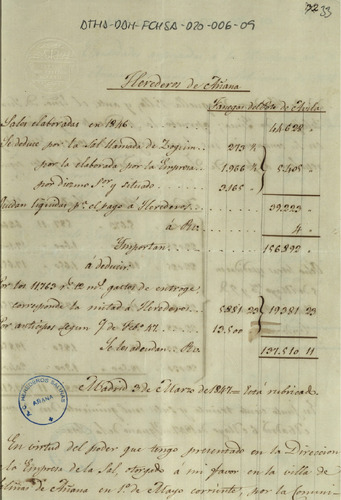 DTHA-DDH-FCHSA-020-006-09
233
Herederos de Añana
Fanegas del Pote de Avila
Sales elaboradas en 1846 44.628
Se deduce por la Sal llamada de 273
por la elaborada por la Empresa 1.966 5.405
por diezmo 3.165
Quedan líquidas pª el pago á Herederos 39.223
á Rv. 4
Importan 156.892
á deducir
Por los 11.763 rˢ 12 mˢ gastos de entroge
corresponde la mitad á Herederos 5.881 23 19.381 23
Por anticipos segun 13.500
Se les adeudan Rv. 137.510 11
Madrid 3 de Marzo de 1847 = Está rubricada
A.C. HEREDEROS SALINAS
AÑANA
En virtud del poder que tengo presentado en la Direccion
de la Empresa de la Sal otorgado á mi favor en la villa de
Salinas de Añana en 1º de Mayo corriente, por la Comuni-